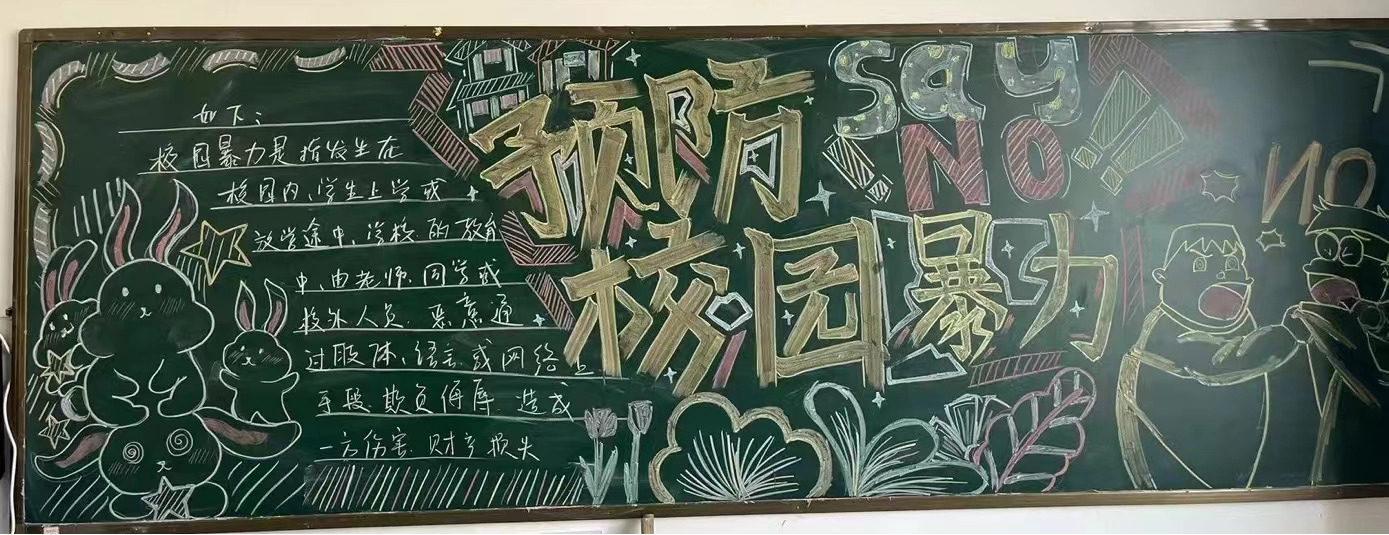 如下:
校园暴力是指发生在
校园内、学生上学或
放学途中、学校的教育
中,由老师、同学或
校外人员,恶意通
过肢体、语言或网络上
手段欺负侮辱,造成
一方伤害、财产损失
预防
校园暴力
say
NO!!
NO